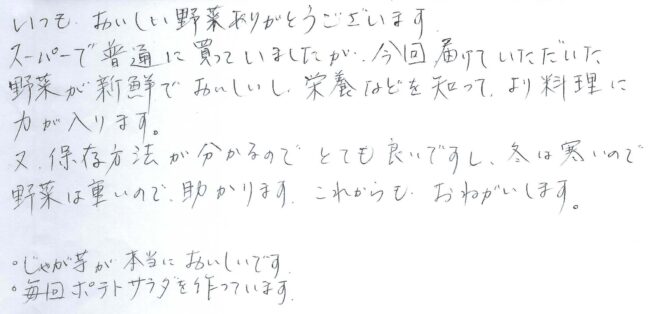 いつも、おいしい野菜ありがとうございます。
スーパーで普通に買っていましたが、今回、届けていただいた
野菜が新鮮でおいしいし、栄養などを知って、より料理に
力が入ります。
又、保存方法が分かるのでとても良いですし、冬は寒いので
野菜は重いので、助かります。これからも、おねがいします。
・じゃが芋が本当においしいです。
・毎回ポテトサラダを作っています。